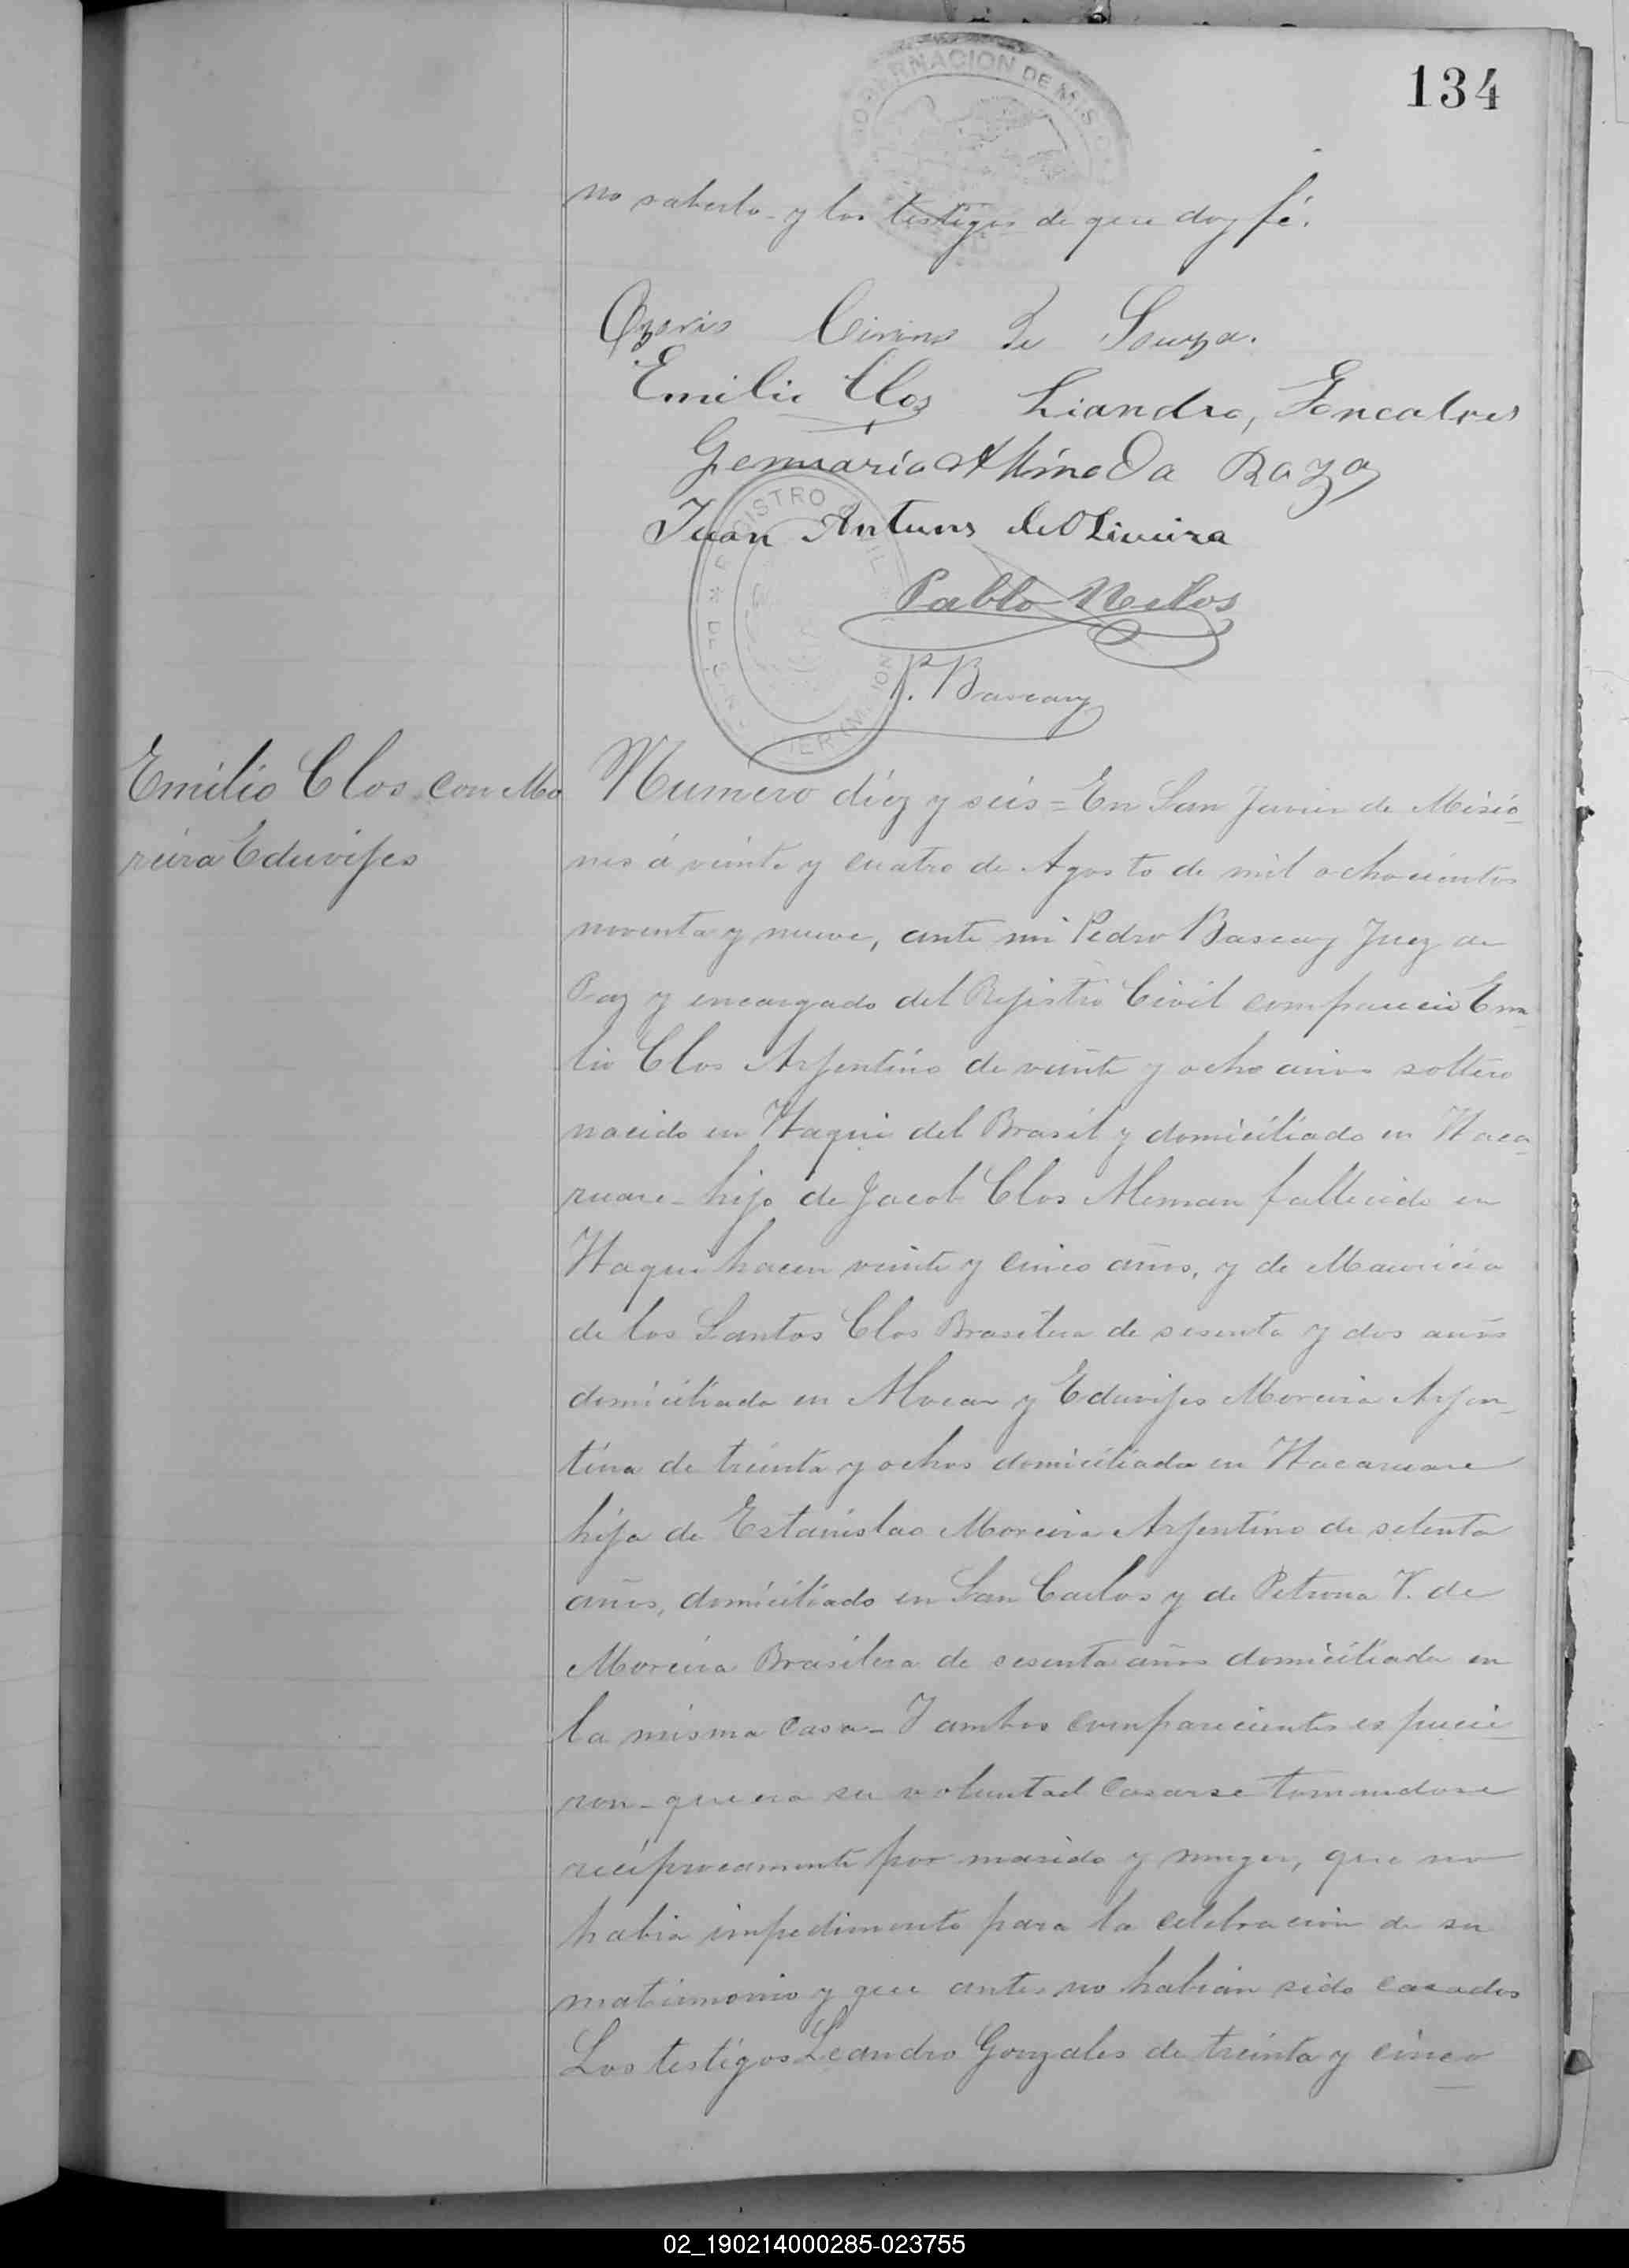 134
GOBERNACION DE MISIO
no saberlo y los testigos de que doy fé.
de Souza.
Emilio Clos Liandro, Goncalves
Genuario Almeda Roza
Juan Antuns de Oliveira
REGISTRO CIVIL
Pablo
P. Bascary
Emilio Clos con Mo
reira Eduvijes
Numero diez y seis = En San Javier de Misio
nes á veinte y cuatro de Agosto de mil ochocientos
noventa y nueve, ante mi Pedro Bascary Juez de
Paz y encargado del Rejistro Civil compareció Emi
lio Clos Arjentino de veinte y ocho años soltero
nacido en Itaqui del Brasil y domiciliado en Itaca
ruare - hijo de Jacob Clos Aleman fallecido en
Itaqui hacen veinte y cinco años, y de Mauricia
de los Santos Clos Brasilera de sesenta y dos años
domiciliada en Alvear y Eduvijes Moreira Arjen
tina de treinta y ochos domiciliada en Itacaruare
hija de Estanislao Moreira Arjentino de setenta
años, domiciliado en San Carlos y de Petrona V. de
Moreira Brasilera de sesenta años domiciliada en
la misma casa - I ambos comparecientes espucie
ron - que era su voluntad casarse tomandose
reciprocamente por marido y muger, que no
habia impedimento para la celebracion de su
matrimonio y que antes no habian sido casados
Los testigos Leandro Gonzales de treinta y cinco
02_190214000285-023755